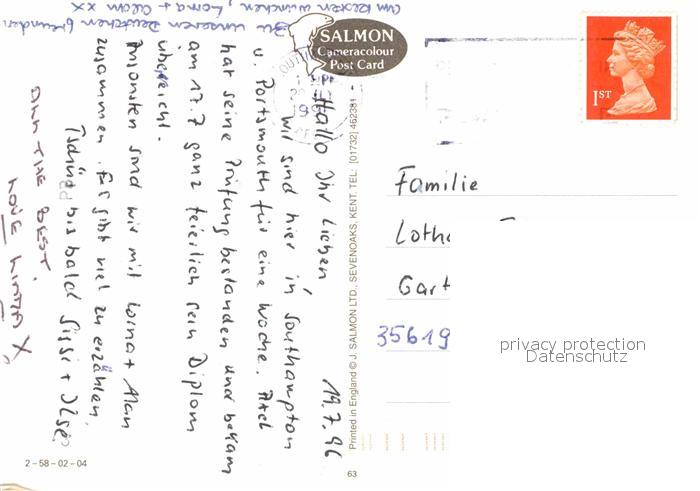 SALMON
Cameracolour
Post Card
1ST
19.7.96
Hallo Ihr Lieben,
wir sind hier in Southampton
u. Portsmouth für eine Woche. Axel
hat seine Prüfung bestanden und bekam
am 17.7 ganz feierlich sein Diplom
überreicht.
Ansonsten sind wir mit Lorna + Alan
zusammen. Es gibt viel zu erzählen,
Tschüß bis bald Sissi + Ilse
ALL THE BEST.
LOVE X
unseren Deutschen Freunden
wünschen, Lorna + Alan xx
Familie
Loth
Gart
35619
privacy protection
Datenschutz
Printed in England © J. SALMON LTD., SEVENOAKS, KENT. TEL: (01732) 452381
2-58-02-04
63